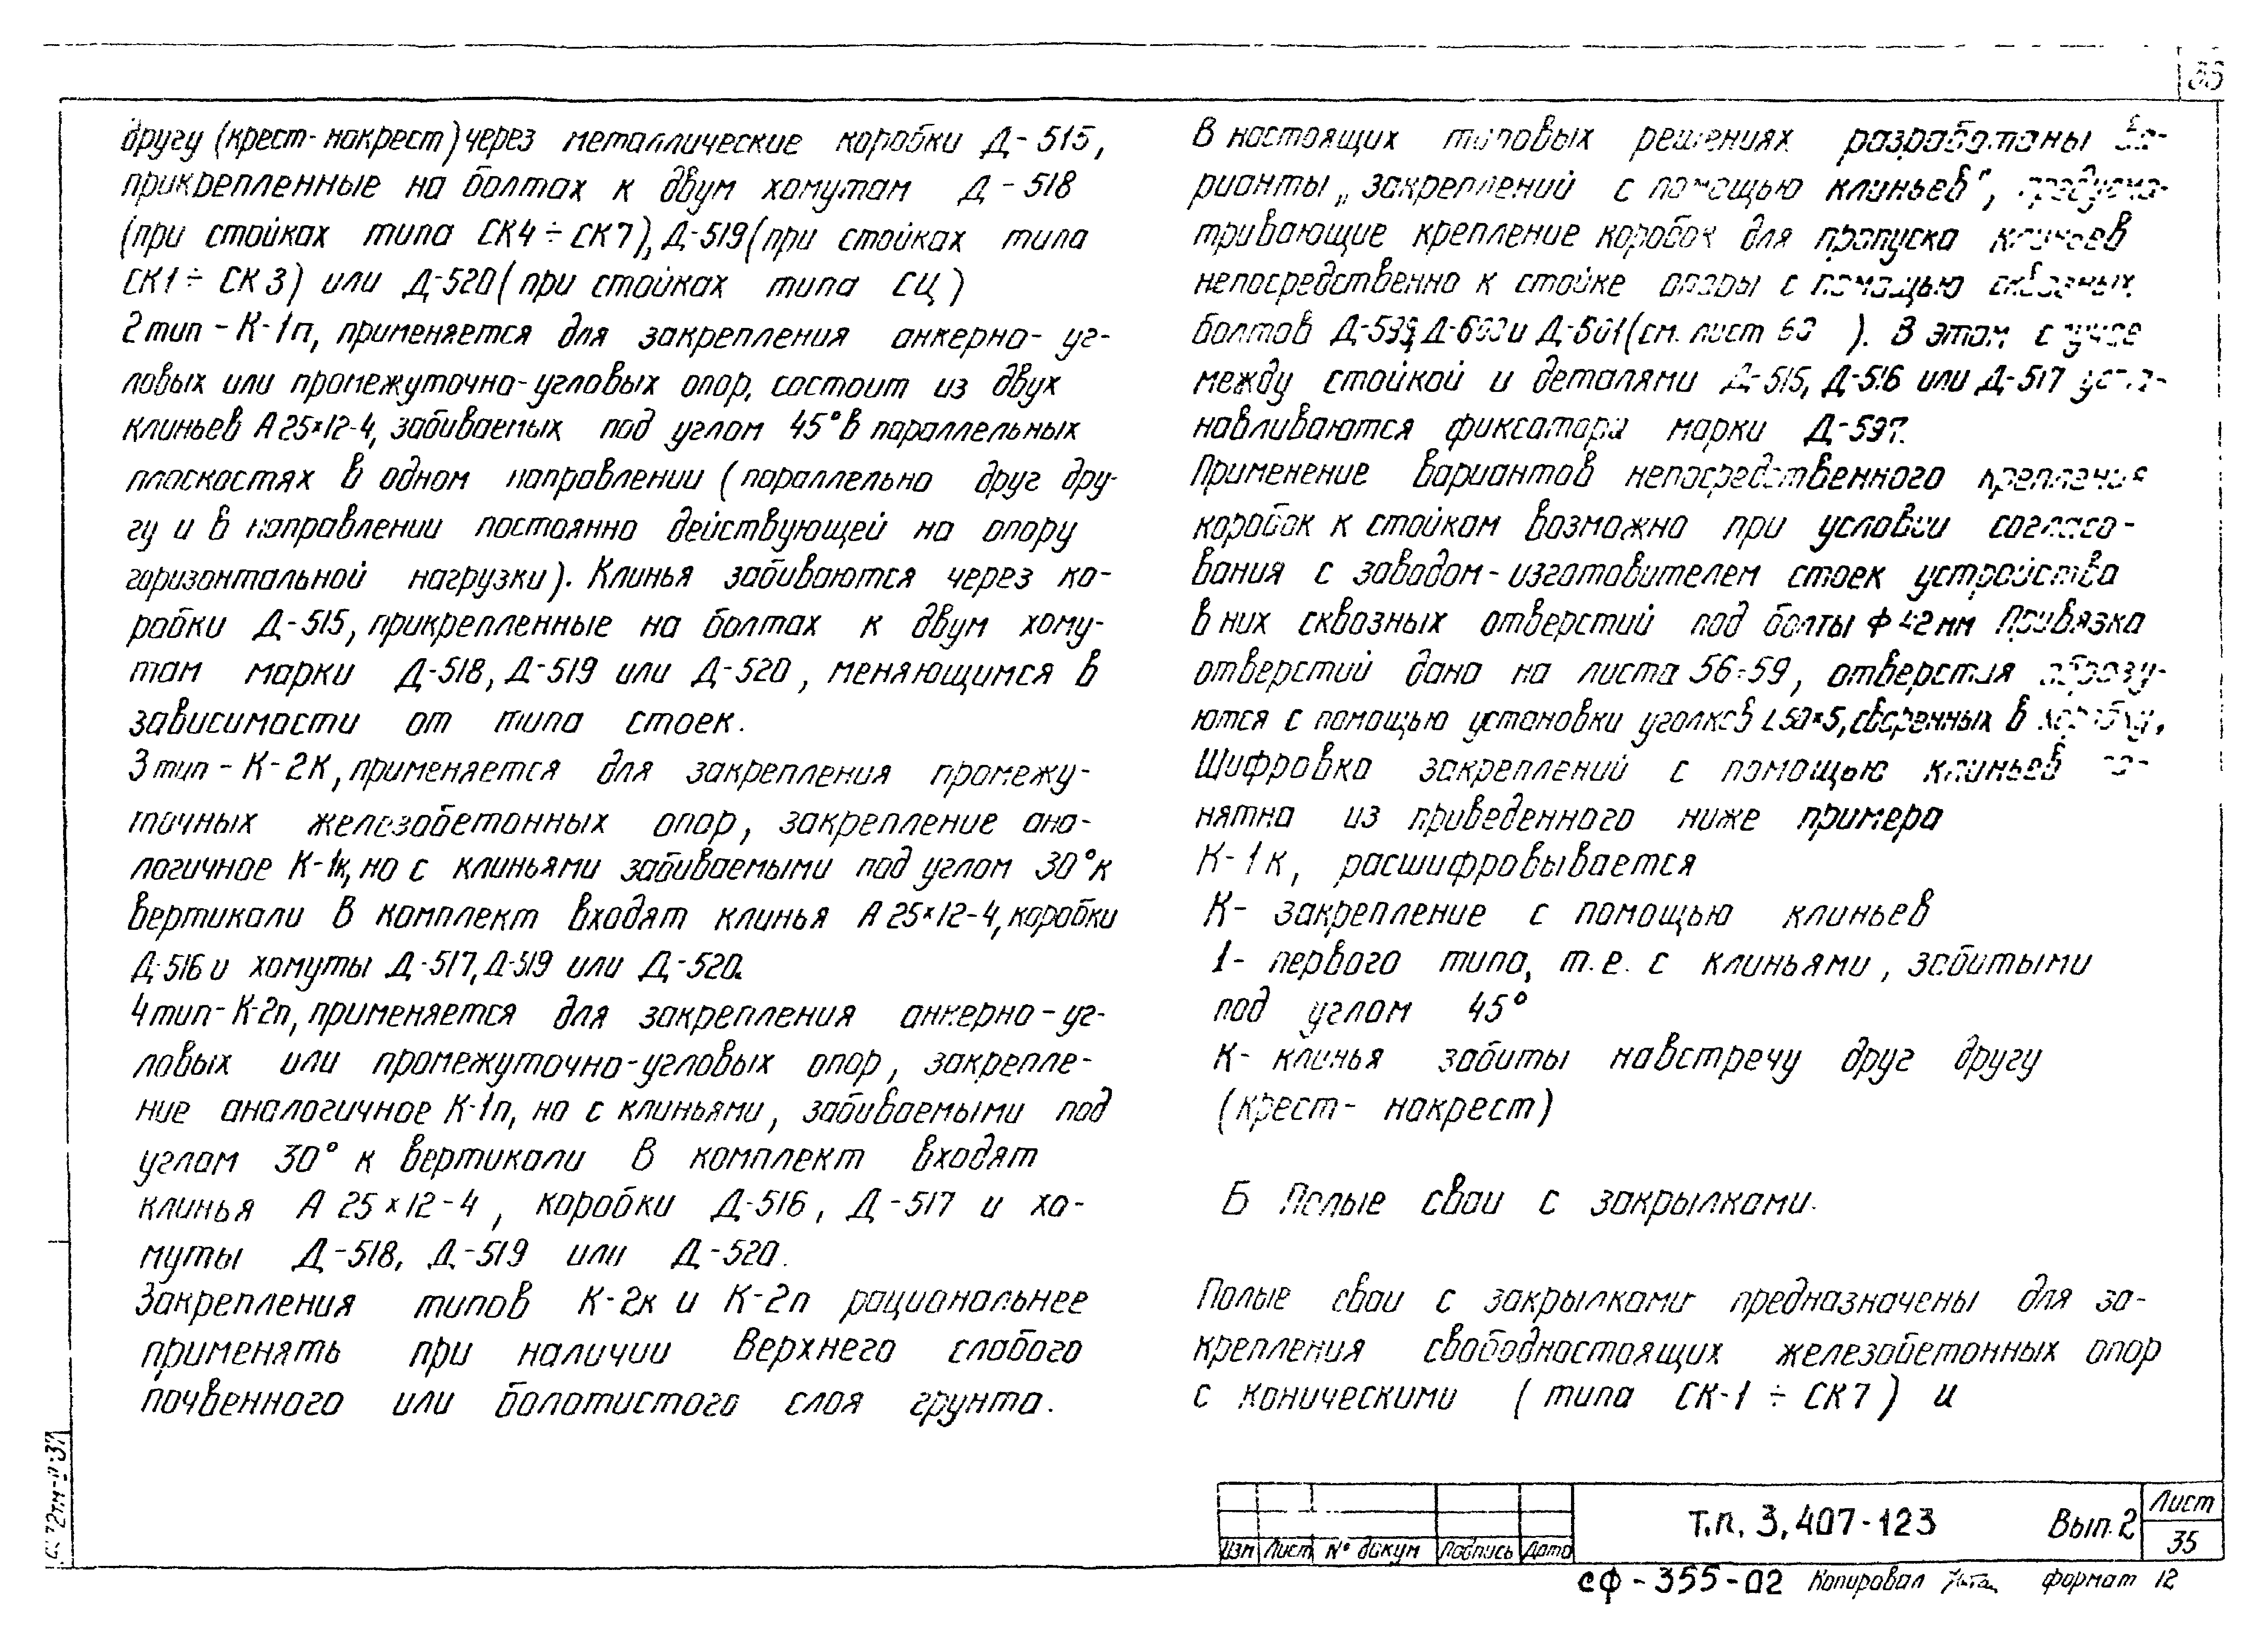 другу (крест-накрест) через металлические коробки Д-515,
прикрепленные на болтах к двум хомутам Д-518
(при стойках типа СК4÷СК7), Д-519 (при стойках типа
СК1÷СК3) или Д-520 (при стойках типа СЦ)
2 тип - К-1п, применяется для закрепления анкерно-уг-
ловых или промежуточно-угловых опор, состоит из двух
клиньев А25×12-4, забиваемых под углом 45° в параллельных
плоскостях в одном направлении (параллельно друг дру-
гу и в направлении постоянно действующей на опору
горизонтальной нагрузки). Клинья забиваются через ко-
робки Д-515, прикрепленные на болтах к двум хому-
там марки Д-518, Д-519 или Д-520, меняющимся в
зависимости от типа стоек.
3 тип - К-2К, применяется для закрепления промежу-
точных железобетонных опор, закрепление ана-
логичное К-1к, но с клиньями забиваемыми под углом 30° к
вертикали В комплект входят клинья А25×12-4, коробки
Д-516 и хомуты Д-517, Д-519 или Д-520.
4 тип - К-2п, применяется для закрепления анкерно-уг-
ловых или промежуточно-угловых опор, закрепле-
ние аналогичное К-1п, но с клиньями, забиваемыми под
углом 30° к вертикали В комплект входят
клинья А 25×12-4, коробки Д-516, Д-517 и хо-
муты Д-518, Д-519 или Д-520.
Закрепления типов К-2к и К-2п рациональнее
применять при наличии верхнего слабого
почвенного или болотистого слоя грунта.
В настоящих типовых решениях разработаны ва-
рианты „закреплений с помощью клиньев", предусма-
тривающие крепление коробок для пропуска клиньев
непосредственно к стойке опоры с помощью сквозных
болтов и (см. лист 60 ). В этом случае
между стойкой и деталями Д-515, Д-516 или Д-517 уста-
навливаются фиксатора марки Д-597.
Применение вариантов непосредственного крепления
коробок к стойкам возможно при условии согласо-
вания с заводом-изготовителем стоек устройства
в них сквозных отверстий под болты Ф 42 мм Привязка
отверстий дана на листа 56÷59, отверстия образу-
ются с помощью установки уголков L50×5, сваренных в коробку.
Шифровка закреплений с помощью клиньев по-
нятна из приведенного ниже примера
К-1к, расшифровывается
К- закрепление с помощью клиньев
1- первого типа, т.е. с клиньями, забитыми
под углом 45°
К- клинья забиты навстречу друг другу
(крест- накрест)
Б Полые сваи с закрылками.
Полые сваи с закрылками предназначены для за-
крепления свободностоящих железобетонных опор
с коническими (типа СК-1÷СК7) и
Изм Лист № докум Подпись Дата
Т.п. 3,407-123 Вып. 2
Лист
35
сф-355-02 Копировал формат 12